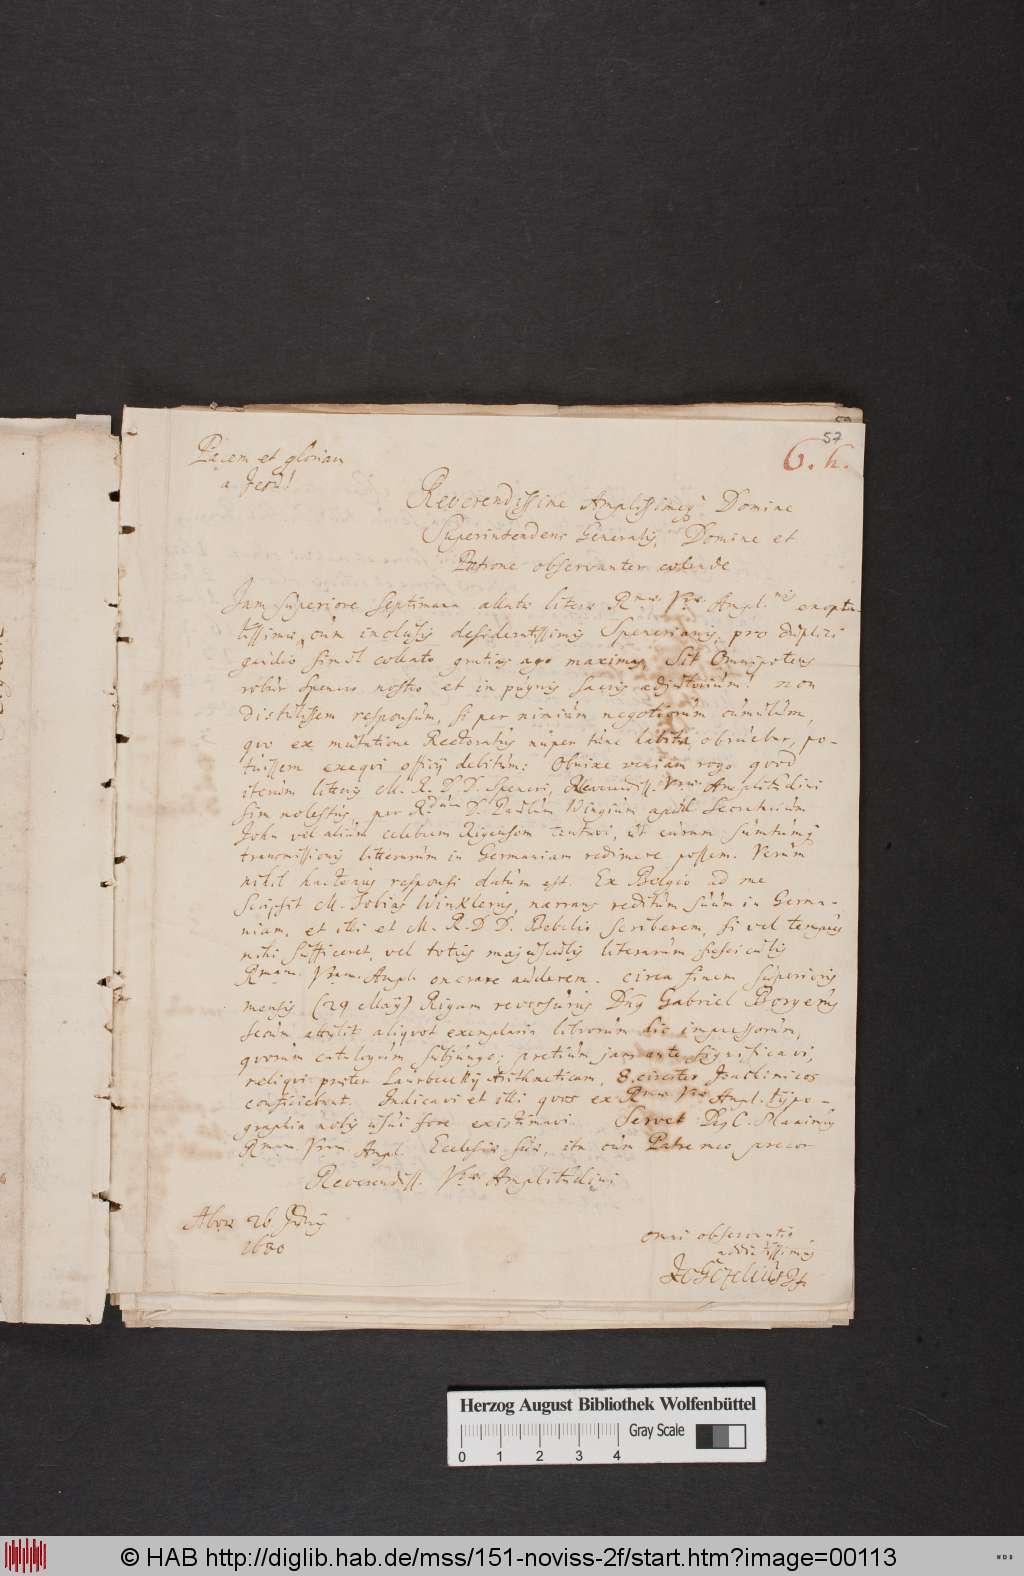 57
6. h.
Pacem et gloriam
a Jesu!
Reverendissime Amplissimeq Domine
Superintendens Generalis, Domine et
Patrone observanter colende
Jam superiore septimana allatis literis Rmæ Vræ Ampl.nis exopta-
tissimis, cum inclusis desideratissimis Spenerianis, pro duplici
gaudio simul collato gratias ago maximas. Sit Omnipotens
robur Spenero nostro et in pugnis sacris adjutorium! non
distulissem responsum, si per nimium negotiorum cumulum,
quo ex mutatione Rectoratus nuper hinc habita obruebar, po-
tuissem exequi officij debitum: Obnixe veniam rogo quod
iterum literis M. R. D D. Speneri, Reverendiss. Vræ Amplitudini
sim molestus, per Rdum D. Paulum Wingium apud Secretarium
John vel alium celebrem Rigensem tentavi, ut curam sumtumq
transmissionis litterarum in Germaniam redimere possem. Verum
nihil hactenus responsi datum est. Ex Belgio ad me
scripsit M. Tobias Winklerus, narrans reditum suum in Germa-
niam, et illi et M. R. D D. Bebelio scriberem, si vel tempus
mihi sufficeret, vel totius majusculis literarum fasciculis
Rmam. Vram. Ampl. onerare auderem. circa finem superioris
mensis (29 Maij) Rigam reversurus Dns Gabriel Borgerus
secum attulit aliquot exemplaria librorum hic impressorum,
quorum catalogum subjungo; pretium jam ante significavi,
reliqui præter Laurbecchij Arithmeticam, 8. circiter Joachimicos
conficiebant. Indicavi et illi quos ex Rmæ Vræ Ampl. typo-
graphia nobis usui fore existimavi. Servet Deus
Rmam Vram Ampl. Ecclesiæ suæ, ita cum Patre meo precor
Reverendiss. Vræ Amplitudini
Aboæ 26 Junij
1680
omni observantia
addictissimus
Herzog August Bibliothek Wolfenbüttel
Gray Scale
0 1 2 3 4
© HAB http://diglib.hab.de/mss/151-noviss-2f/start.htm?image=00113